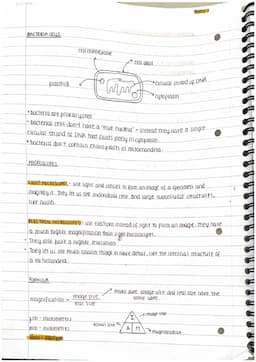 BACTERIA CELLS
cell membrane
cell wall
plasmid
circular strand of DNA
cytoplasm
* bacteria are prokaryotes
* bacterial cells don't have a 'true nucleus' - instead they have a single
circular strand of DNA that floats freely in cytoplasm.
* bacteria don't contain chloroplasts or mitochondria.
MICROSCOPES
LIGHT MICROSCOPES - use light and lenses to form an image of a specimen and
magnify it. They let us see individual cells and large subcellular structures,
like nuclei.
ELECTRON MICROSCOPES - use electrons instead of light to form an image. They have
a much higher magnification than light microscopes.
* They also have a higher resolution
* They let us see much smaller things in more detail, like the internal structure of
a mitochondria.
FORMULA
magnification = image size
real size
make sure image size and real size have the
same units.
image size
actual size
I
A M
magnification